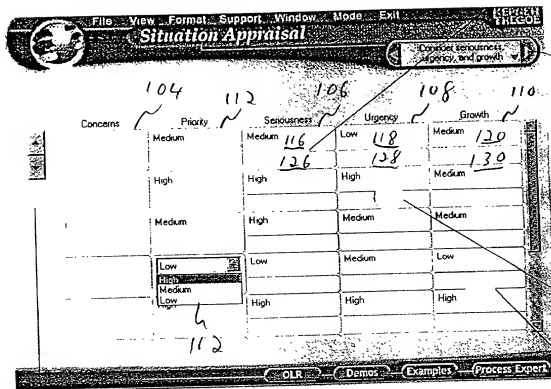 File View Format Support Window Mode Exit
KEPNER
TREGOE
Situation Appraisal
Consider seriousness,
urgency, and growth
104 112 106 108 110
Concerns Priority Seriousness Urgency Growth
Medium Medium 116 Low 118 Medium 120
126 128 130
High High High Medium
Medium High Medium Medium
Low Low Medium Low
High
Medium
Low
High High High High
112
OLR Demos Examples Process Expert